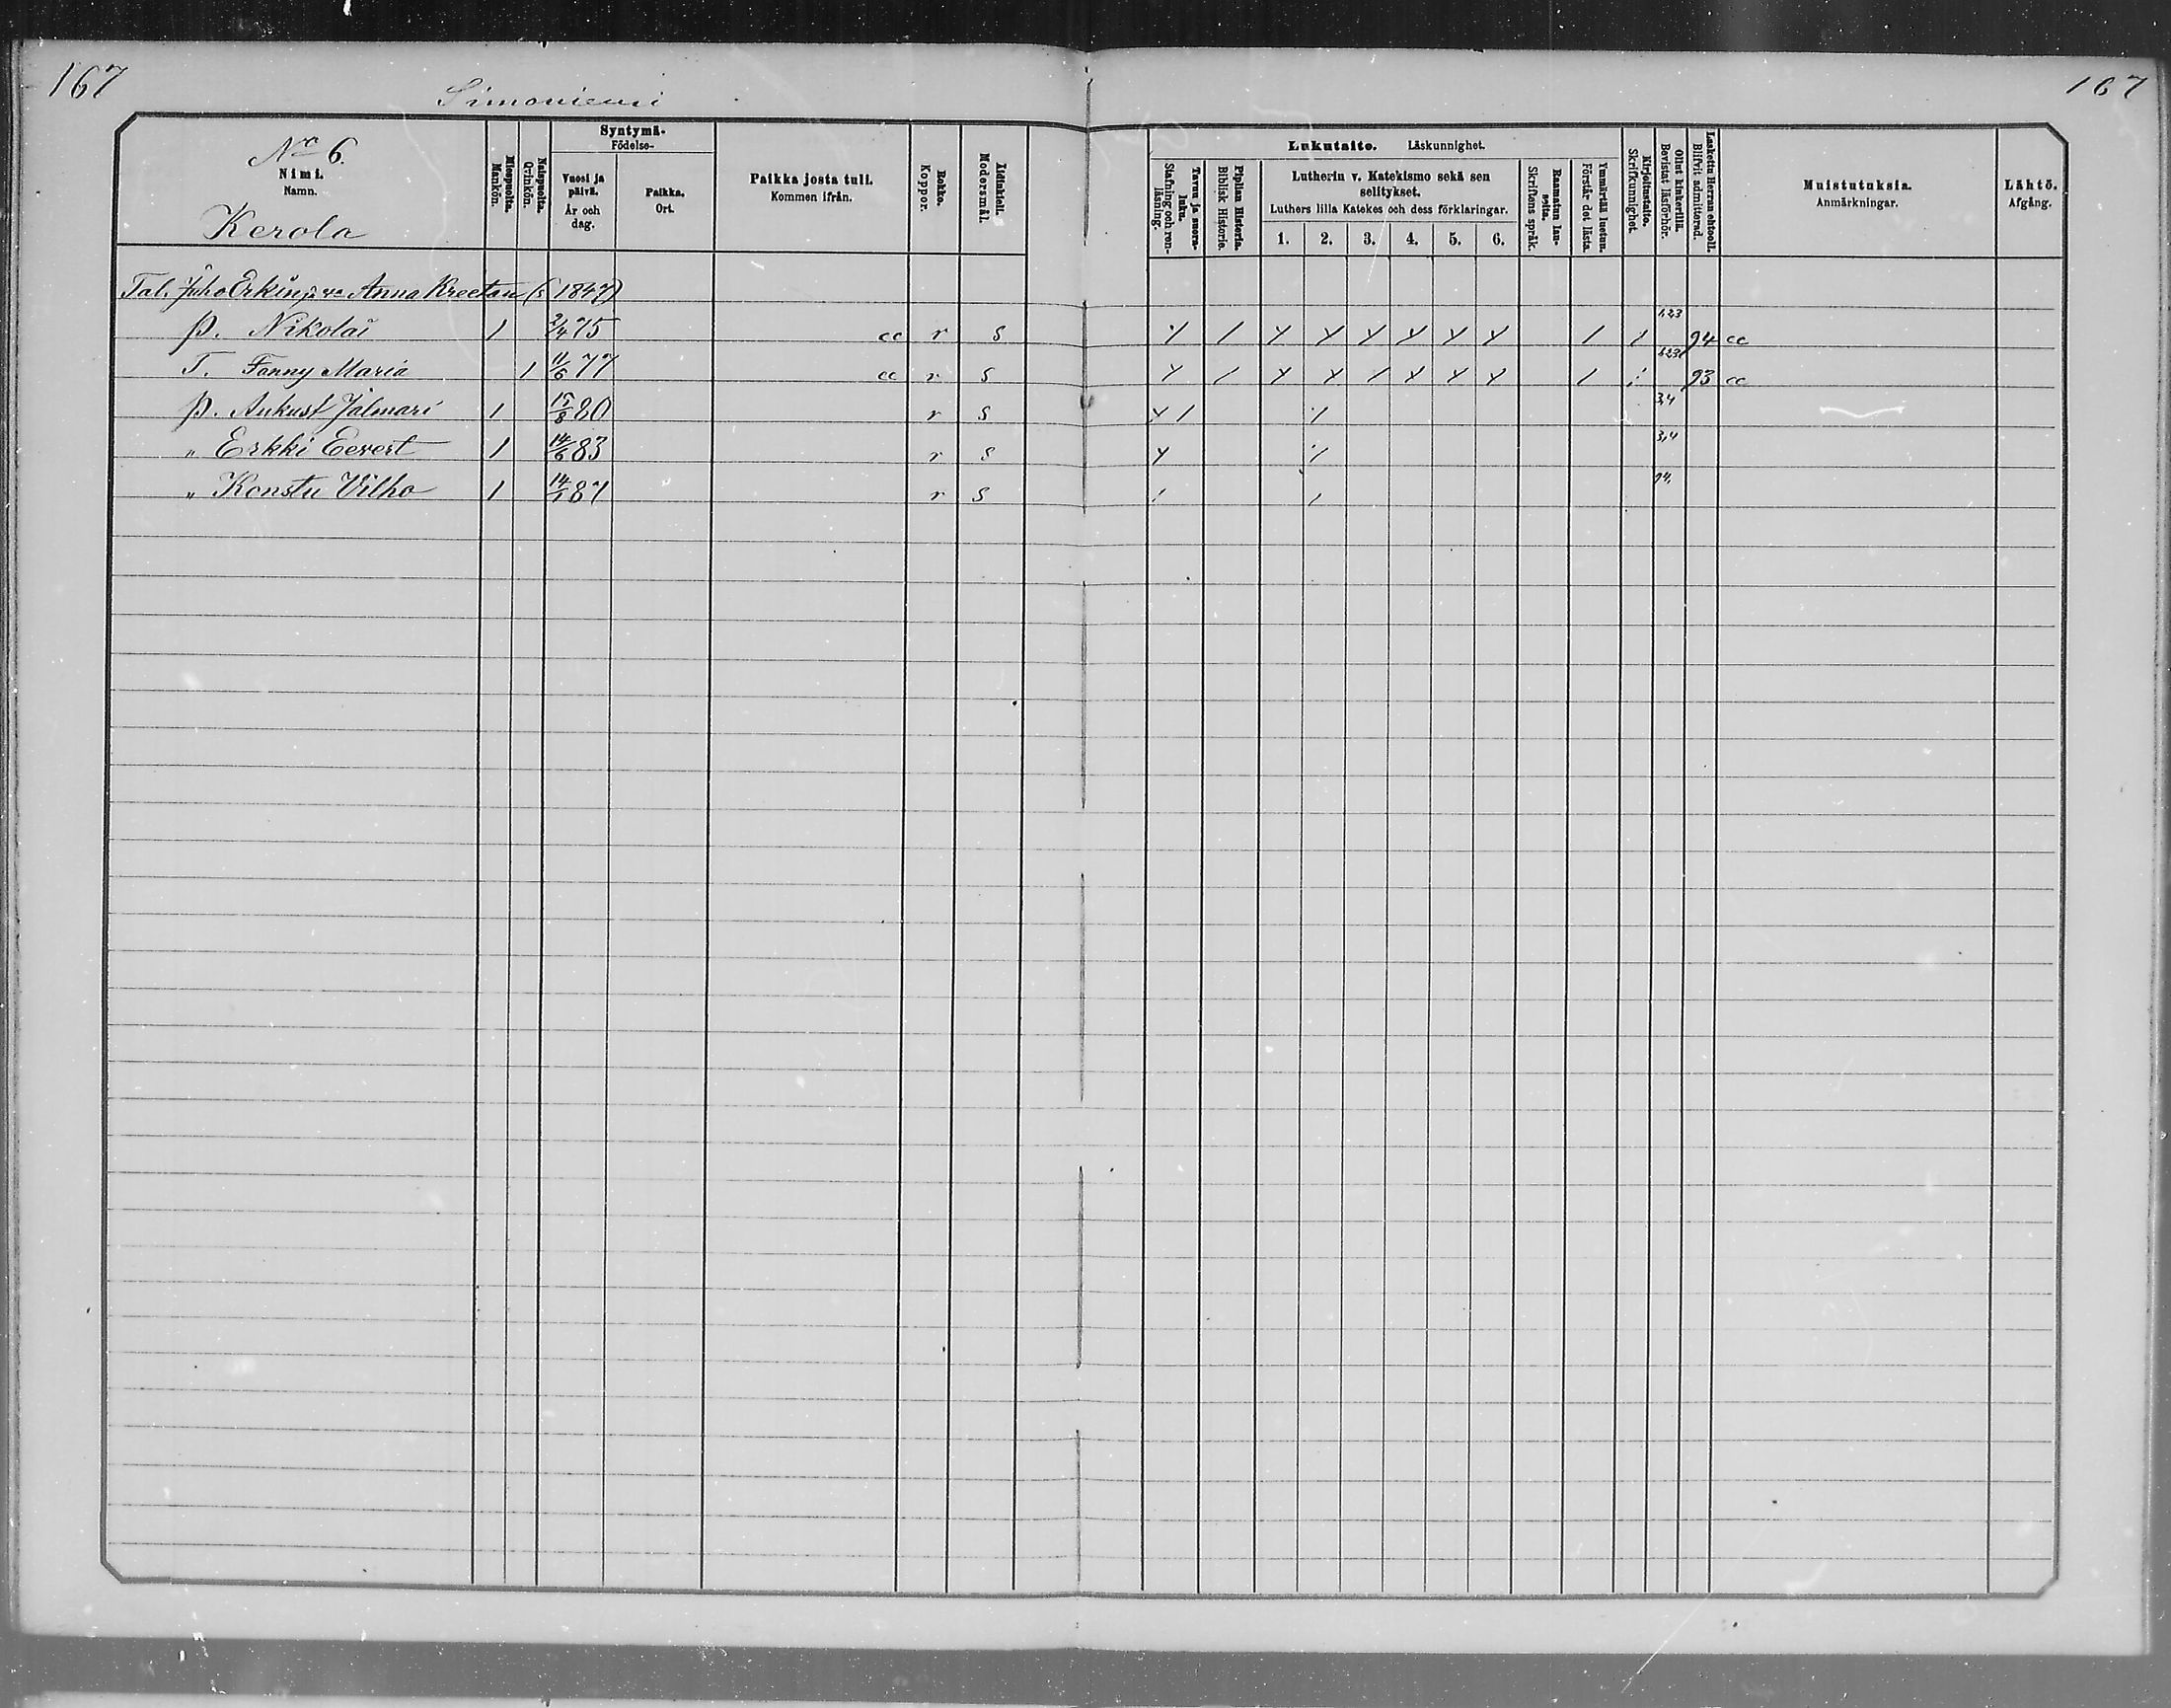 167
Simoniemi
167
No 6.
Nimi.
Namn.
Kerola
Miespuolta.
Mankön.
Naispuolta.
Qvinkön.
Syntymä-
Födelse-
Vuosi ja päivä.
År och dag.
Paikka.
Ort.
Paikka josta tuli.
Kommen ifrån.
Rokko.
Koppor.
Äidinkieli.
Modersmål.
Lukutaito. Läskunnighet.
Tavuu ja suora-luku.
Stafning och ren-läsning.
Piplian Historia.
Biblisk Historie.
Lutherin v. Katekismo sekä sen selitykset.
Luthers lilla Katekes och dess förklaringar.
1. 2. 3. 4. 5. 6.
Raamatun lau-seita.
Skriftens språk.
Ymmärtää luetun.
Förstår det lästa.
Kirjoitustaito.
Skrifkunnighet.
Ollut kinkerillä.
Bevistat läsförhör.
Laskettu Herran ehtooll.
Blifvit admitterad.
Muistutuksia.
Anmärkningar.
Lähtö.
Afgång.
Tal. Juho Erkin ja va Anna Kreetan (s 1847)
P. Nikolai 1 2/4 75 cc r s 1,2,3 94 cc
T. Fanny Maria 1 11/6 77 cc r s 93 cc
P. Aukust Jalmari 1 15/8 80 r s 3,4
" Erkki Eevert 1 14/6 83 r s 3,4
" Konstu Vilho 1 14/1 87 r s 94,